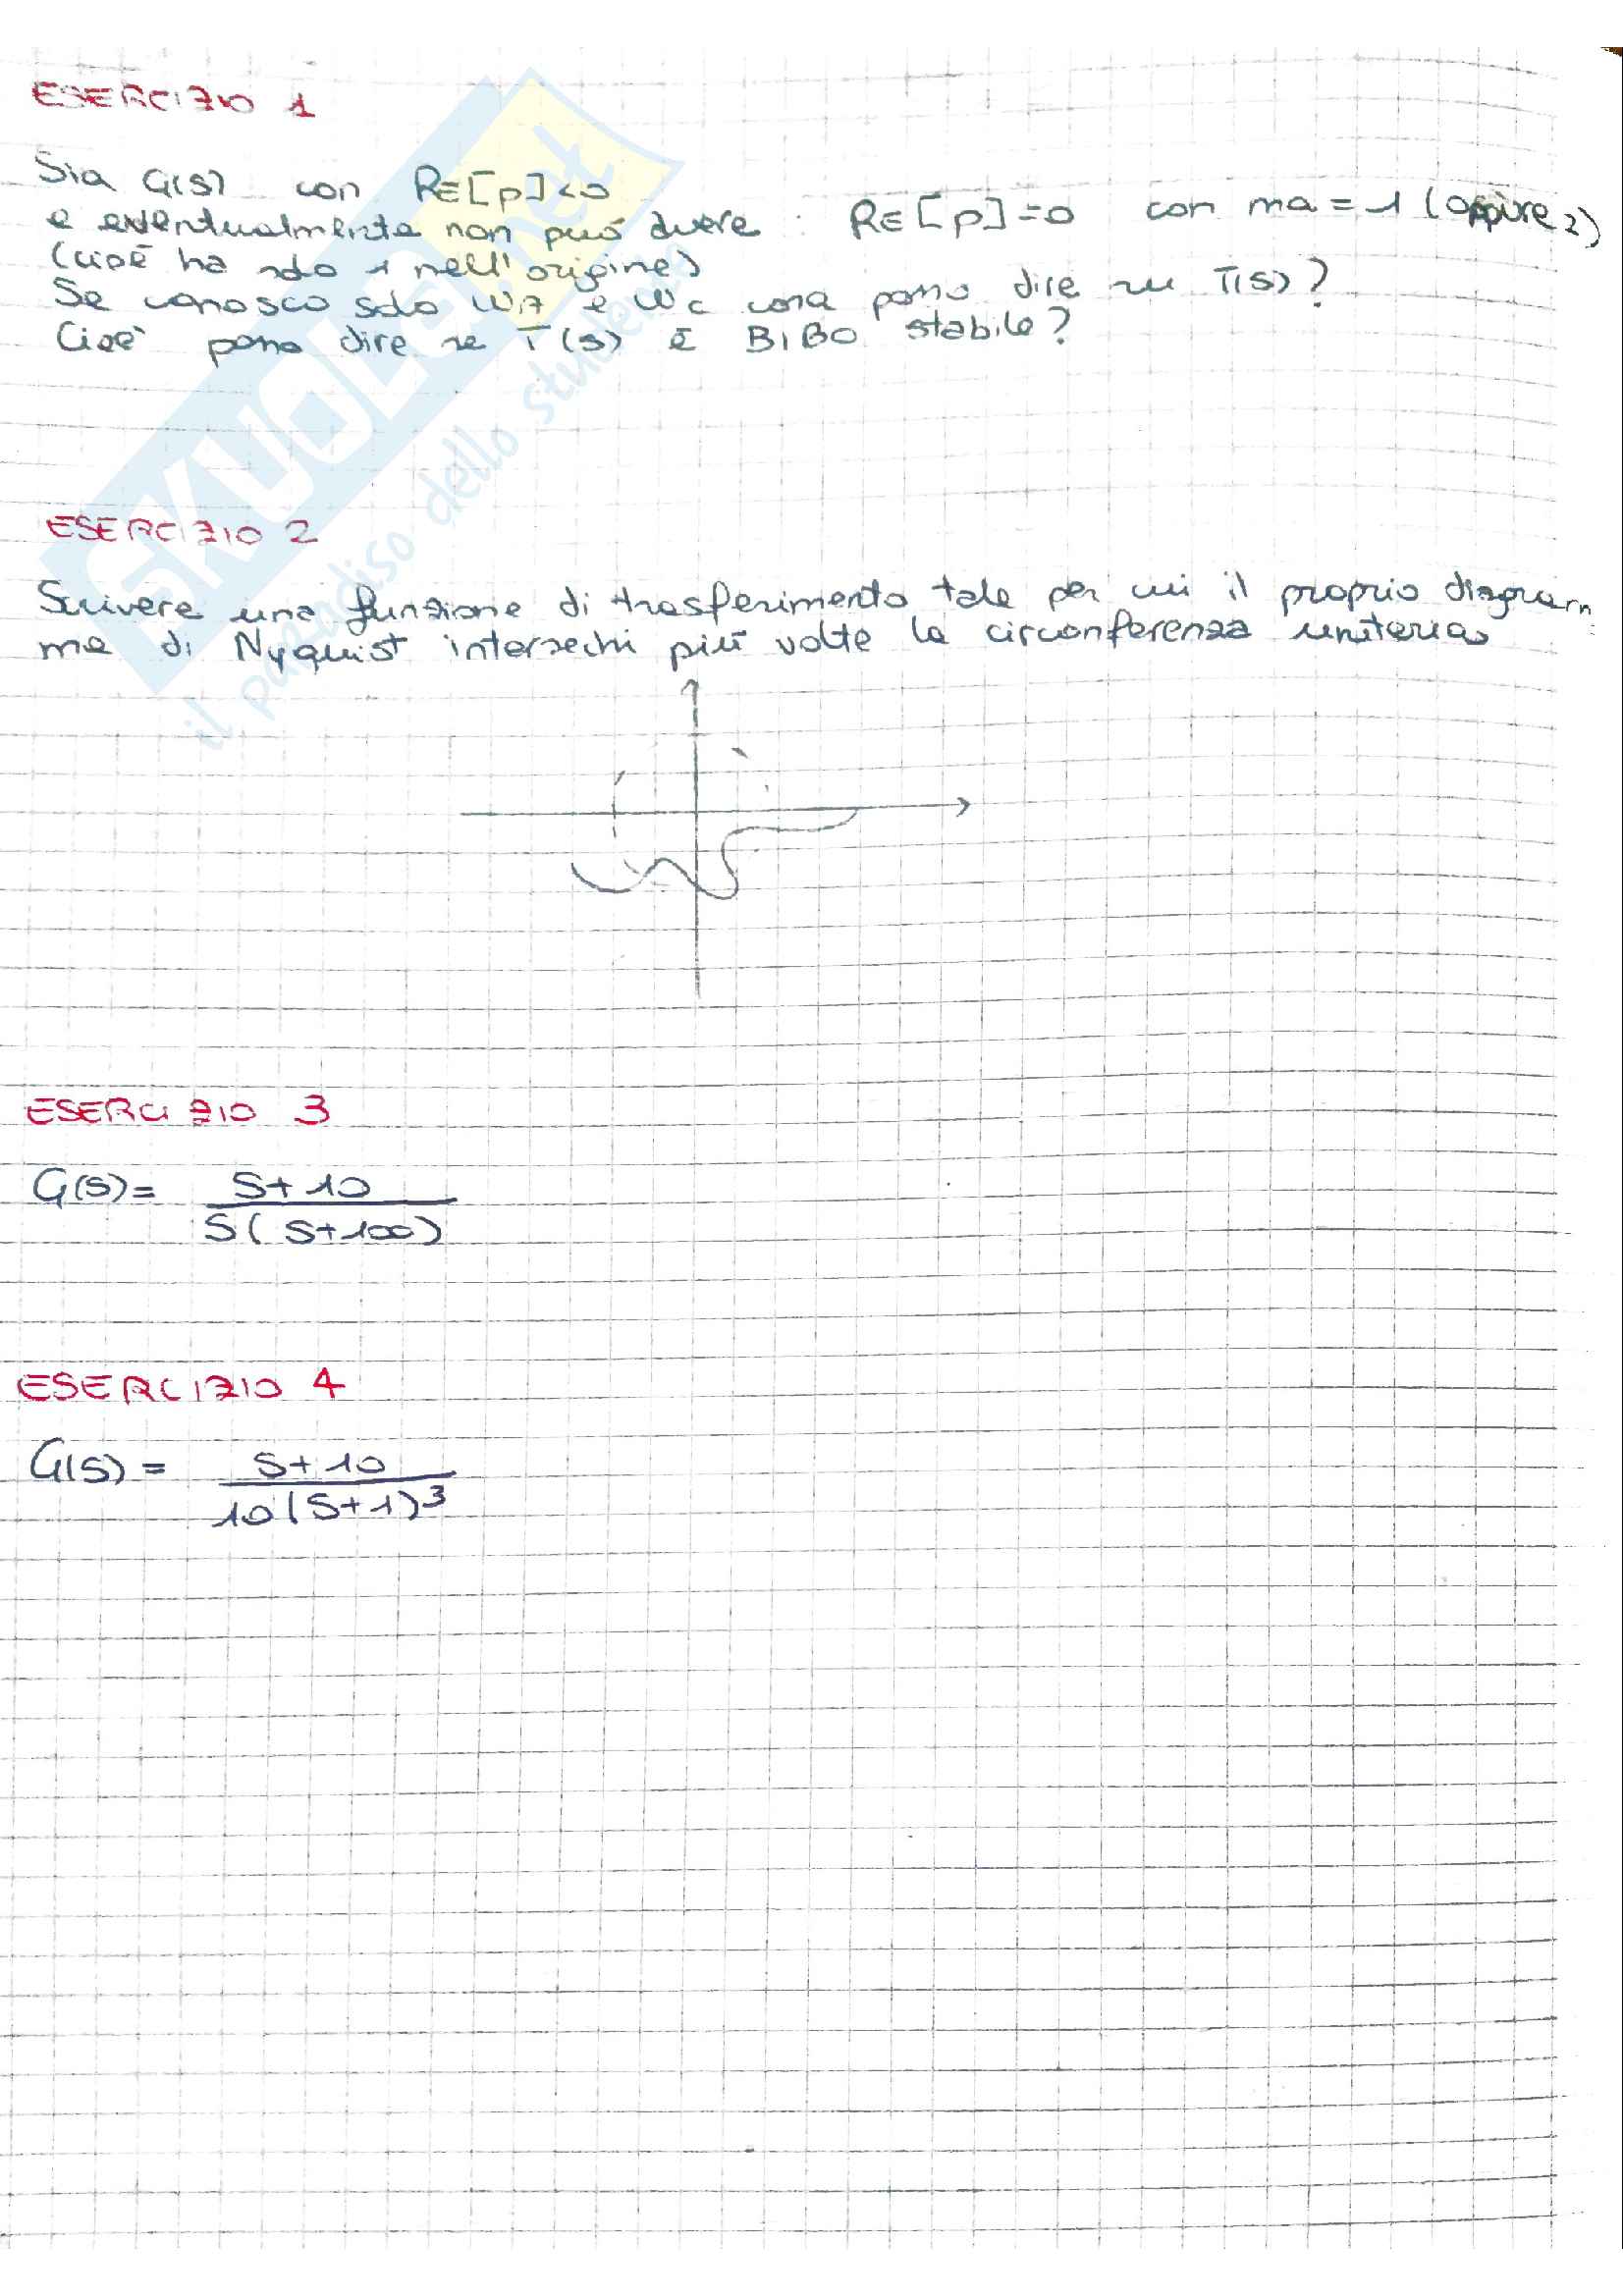 ESERCIZIO 1
Sia G(s) con RE[p]<0
e eventualmente non può avere : RE[p]=0 con ma=1 (oppure 2)
(cioè ha solo 1 nell'origine)
Se conosco solo WA e Wc cosa posso dire su T(s)?
Cioè posso dire se T(s) è BIBO stabile?
ESERCIZIO 2
Scrivere una funzione di trasferimento tale per cui il proprio diagram
ma di Nyquist intersechi più volte la circonferenza unitaria
ESERCIZIO 3
G(s)= S+10
S(S+100)
ESERCIZIO 4
G(s) = S+10
10(S+1)³
SKUOLA.net
il paradiso dello studente